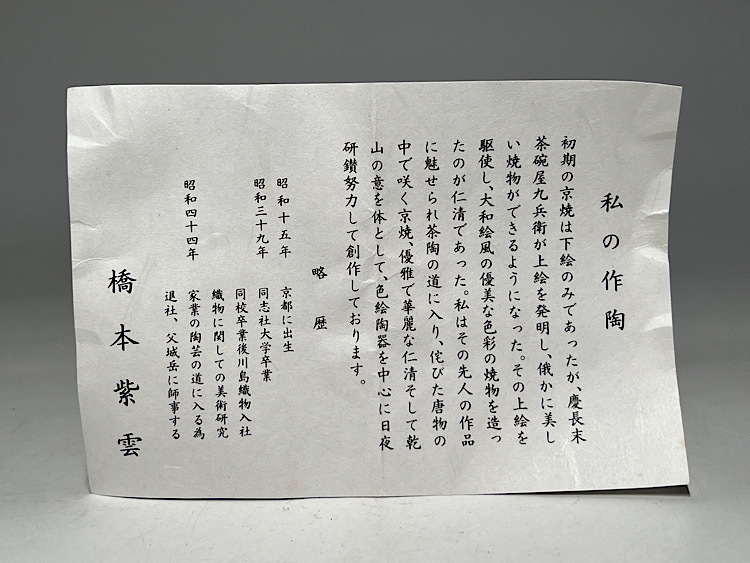 私の作陶
初期の京焼は下絵のみであったが、慶長末
茶碗屋九兵衛が上絵を発明し、俄かに美し
い焼物ができるようになった。その上絵を
駆使し、大和絵風の優美な色彩の焼物を造っ
たのが仁清であった。私はその先人の作品
に魅せられ茶陶の道に入り、侘びた唐物の
中で咲く京焼、優雅で華麗な仁清そして乾
山の意を体として、色絵陶器を中心に日夜
研鑽努力して創作しております。
略歴
昭和十五年 京都に出生
昭和三十九年 同志社大学卒業
同校卒業後川島織物入社
織物に関しての美術研究
昭和四十四年 家業の陶芸の道に入る為
退社、父城岳に師事する
橋本紫雲